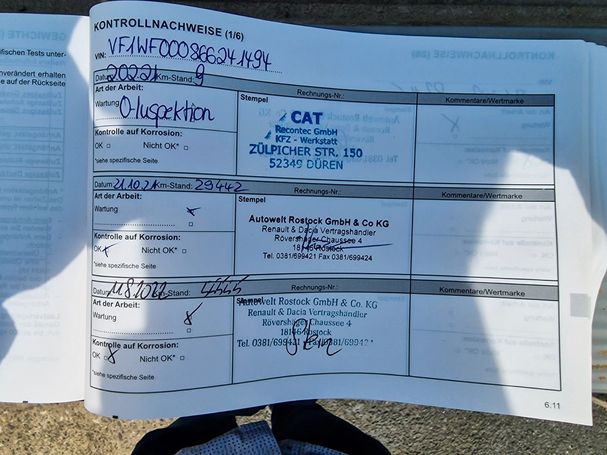 KONTROLLNACHWEISE (1/6)
VIN: VF1WF000866241494
Datum: Km-Stand: 9 Rechnungs-Nr.: Kommentare/Wertmarke
Art der Arbeit:
Wartung O-Iuspektion
Kontrolle auf Korrosion:
OK Nicht OK*
*siehe spezifische Seite
Stempel
CAT
Recontec GmbH
KFZ - Werkstatt
ZÜLPICHER STR. 150
52349 DÜREN
Datum: 21.10.21 Km-Stand: 29442 Rechnungs-Nr.: Kommentare/Wertmarke
Art der Arbeit:
Wartung x
Kontrolle auf Korrosion:
OK x Nicht OK*
*siehe spezifische Seite
Stempel
Autowelt Rostock GmbH & Co KG
Renault & Dacia Vertragshändler
Rövershäger Chaussee 4
18146 Rostock
Tel. 0381/699421 Fax 0381/699424
Datum: Km-Stand: Rechnungs-Nr.: Kommentare/Wertmarke
Art der Arbeit:
Wartung x
Kontrolle auf Korrosion:
OK x Nicht OK*
*siehe spezifische Seite
Stempel
Autowelt Rostock GmbH & Co. KG
Renault & Dacia Vertragshändler
Rövershäger Chaussee 4
18146 Rostock
Tel. 0381/699421
6.11
ifischen Tests unter-
nverändert erhalten
e auf der Rückseite